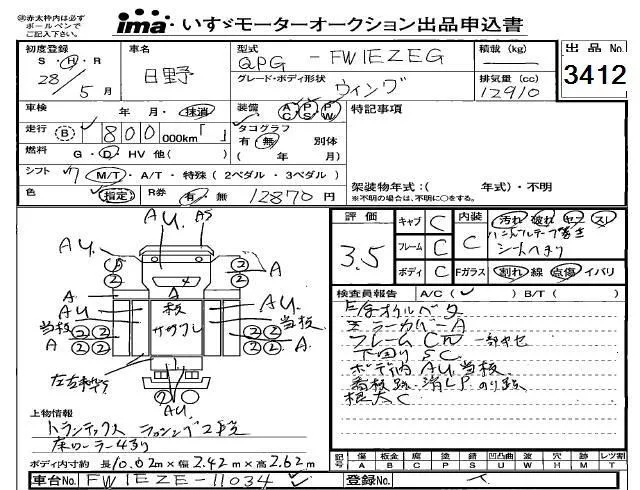 ㊟赤太枠内は必ず
ボールペンで
ご記入下さい。
ima いすゞモーターオークション出品申込書
初度登録 車名 型式 積載(kg) 出品No.
S・H・R QPG - FW1EZEG
28/5月 日野 グレード・ボディ形状 ウィング 排気量(cc) 12910 3412
車検 年 月・抹消 装備 AC PS PW 特記事項
走行 B 800 000km「 」 タコグラフ
有・無 別体
燃料 G・D・HV 他( ) ( 年 月)
シフト 7 M/T・A/T・特殊(2ペダル・3ペダル) 架装物年式:( 年式)・不明
※不明の場合は、不明に○をする。
色 指定 R券 有・無 12870円
評価 3.5 キャブ C 内装 C 汚れ 破れ ヤケ スレ
ハンドルテープ巻き
シートへたり
フレーム C
ボディ C Fガラス 割れ 線 点傷 イバリ
検査員報告 A/C( ✓ ) B/T( )
ミラーカバーA
フレームCN 一部ヤセ
下回りSC
ボディ内AU 当板
看板跡 消しP のり跡
根太C
AU. AS
AU. AU
② ② ② ②
A A A
AU. 板 AU.
当板 サカサフレ 当板
A ② ② ② ② A
AU.
上物情報
トランテックス ラッシング2段
床ローラー4列
ボディ内寸約 長10.02m×幅2.42m×高2.62m
記号 傷A 板金B 腐C 塗P 錆S 凹凸曲U 波W 穴H 跡M レツ割T
車台No. FW1EZE-11034 登録No.